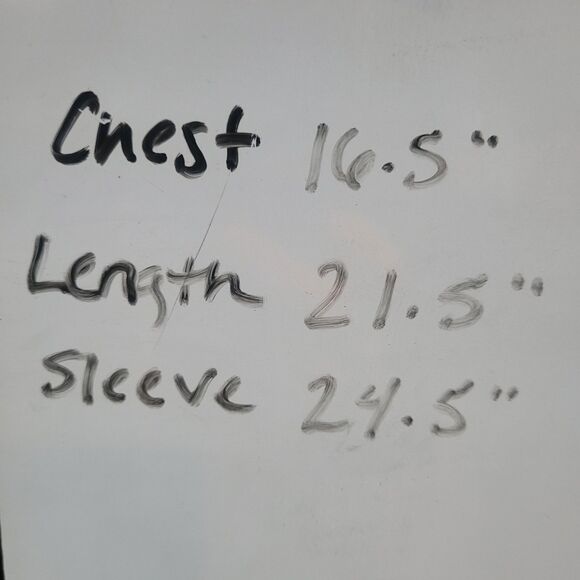 Chest 16.5"
Length 21.5"
Sleeve 24.5"